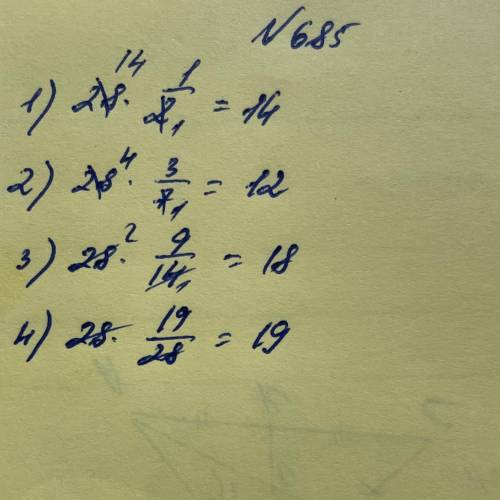 N 685
1) 28¹⁴ · 1/2₁ = 14
2) 28⁴ · 3/7₁ = 12
3) 28² · 9/14₁ = 18
4) 28 · 19/28 = 19